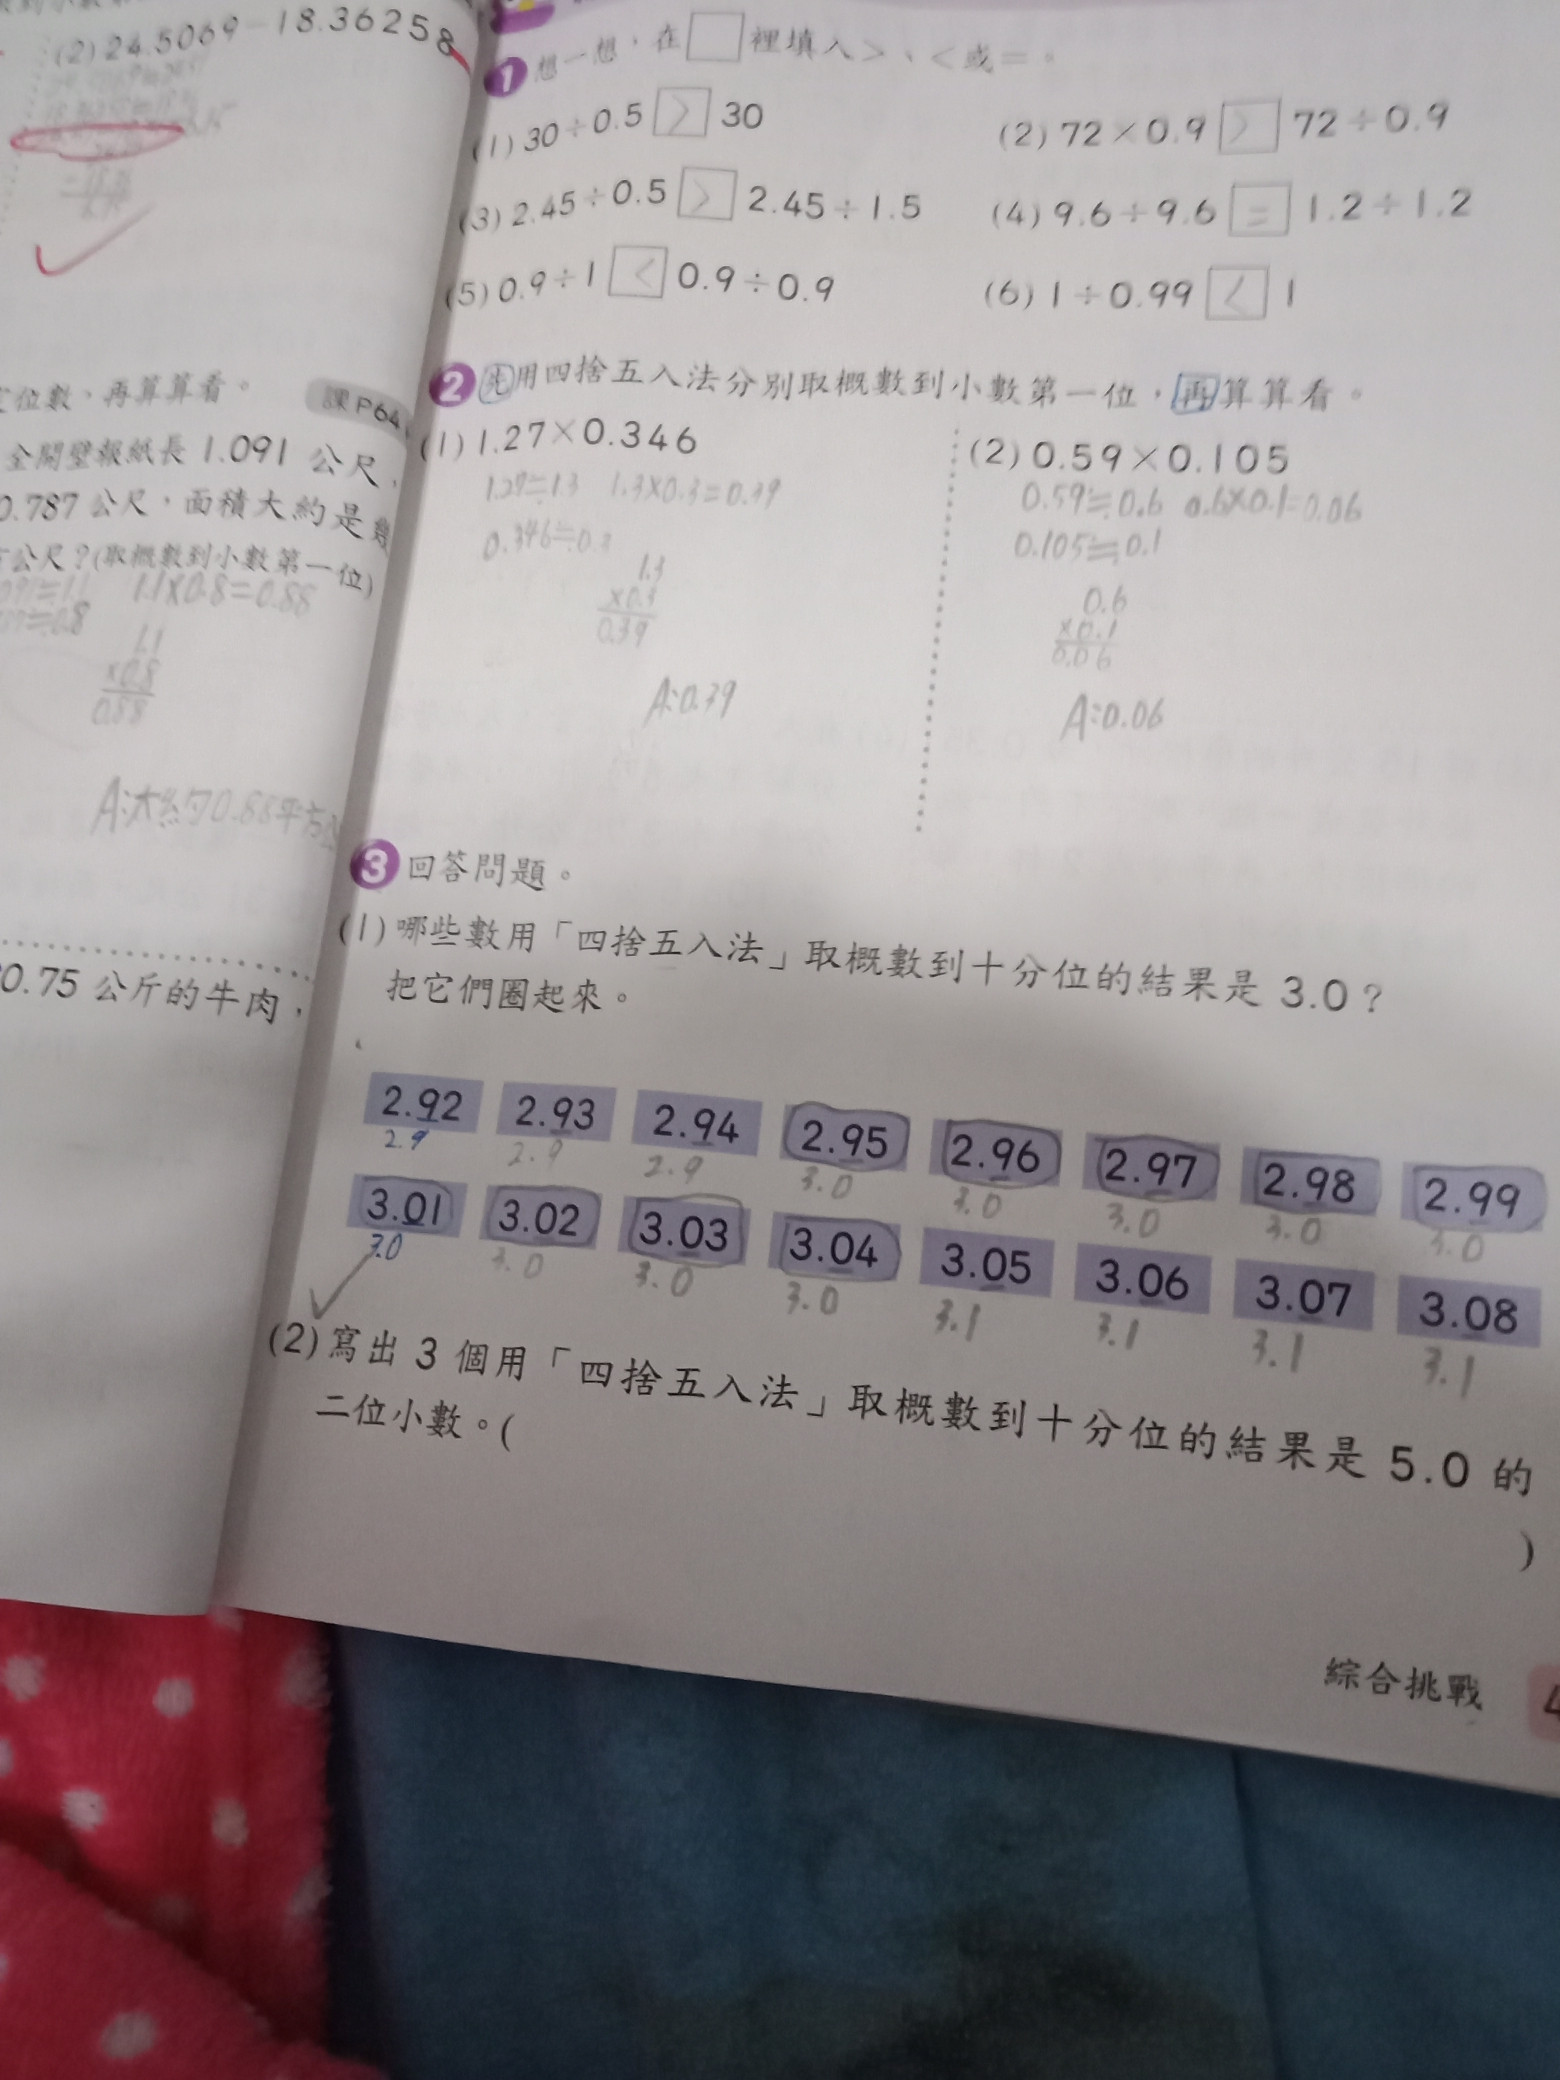 (2) 24.5069－18.36258
位數，再算算看。
課P64
全開壁報紙長 1.091 公尺，
0.787 公尺，面積大約是幾
公尺？(取概數到小數第一位)
1.1×0.8=0.88
≒0.8
1.1
×0.8
0.88
A:大約0.88平方公
0.75 公斤的牛肉，
1 想一想，在□裡填入＞、＜或＝。
(1) 30÷0.5 > 30
(2) 72×0.9 > 72÷0.9
(3) 2.45÷0.5 > 2.45÷1.5
(4) 9.6÷9.6 = 1.2÷1.2
(5) 0.9÷1 < 0.9÷0.9
(6) 1÷0.99 < 1
2 先用四捨五入法分別取概數到小數第一位，再算算看。
(1) 1.27×0.346
1.27≒1.3 1.3×0.3=0.39
0.346≒0.3
1.3
×0.3
0.39
A:0.39
(2) 0.59×0.105
0.59≒0.6 0.6×0.1=0.06
0.105≒0.1
0.6
×0.1
0.06
A:0.06
3 回答問題。
(1) 哪些數用「四捨五入法」取概數到十分位的結果是 3.0？
把它們圈起來。
2.92 2.93 2.94 2.95 2.96 2.97 2.98 2.99
2.9 2.9 2.9 3.0 3.0 3.0 3.0 3.0
3.01 3.02 3.03 3.04 3.05 3.06 3.07 3.08
3.0 3.0 3.0 3.0 3.1 3.1 3.1 3.1
(2) 寫出 3 個用「四捨五入法」取概數到十分位的結果是 5.0 的
二位小數。(
)
綜合挑戰